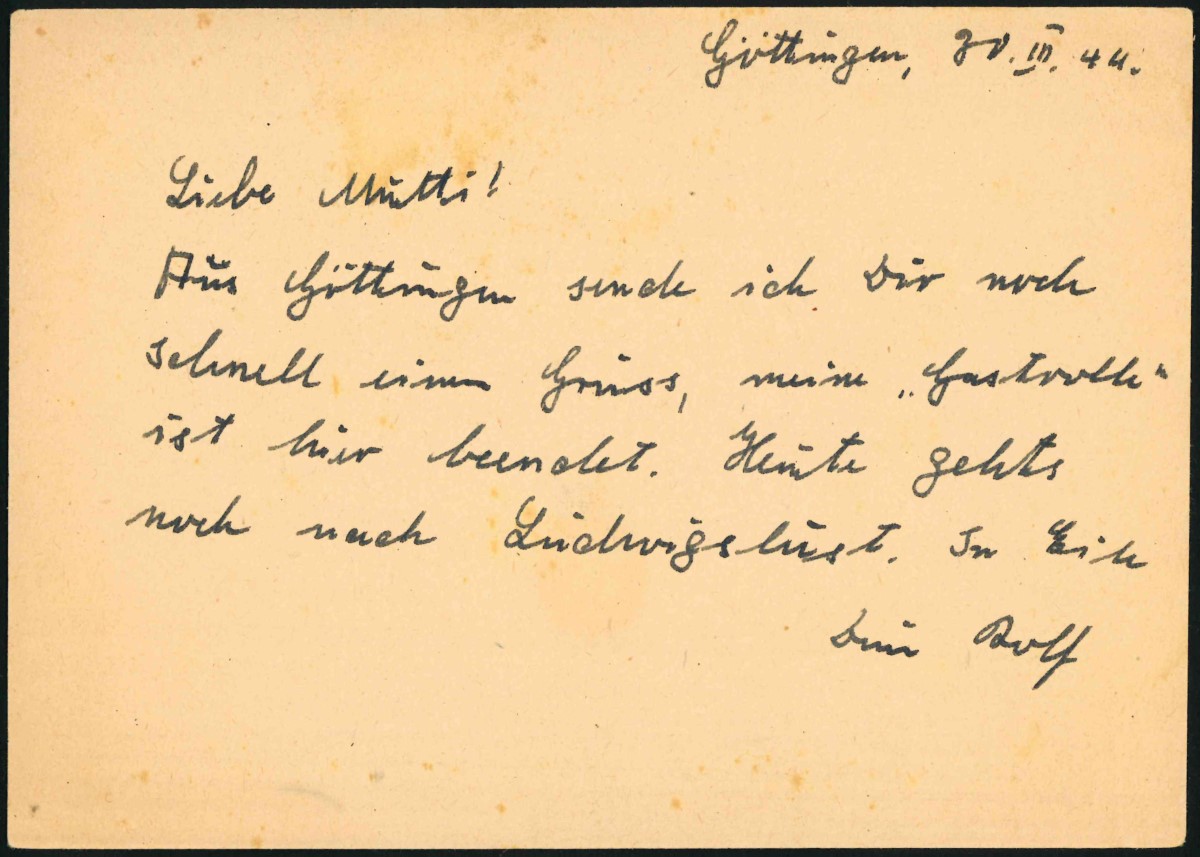 Göttingen, 30. III. 44.
Liebe Mutti!
Aus Göttingen sende ich Dir noch
schnell einen Gruss, meine „Gastrolle“
ist hier beendet. Heute gehts
noch nach Ludwigslust. In Eile
Dein Rolf